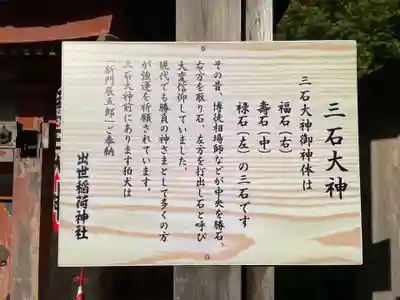 三石大神
三石大神御神体は
福石（右）
壽石（中）
禄石（左）の三石です
その昔、博徒相場師などが中央を勝石、
右方を取り石、左方を打出し石と呼び
大変信仰していました。
現代でも勝負の神さまとして多くの方
が強運を祈願されています。
三石大神前にあります狛犬は
「新門辰五郎」ご奉納
出世稲荷神社